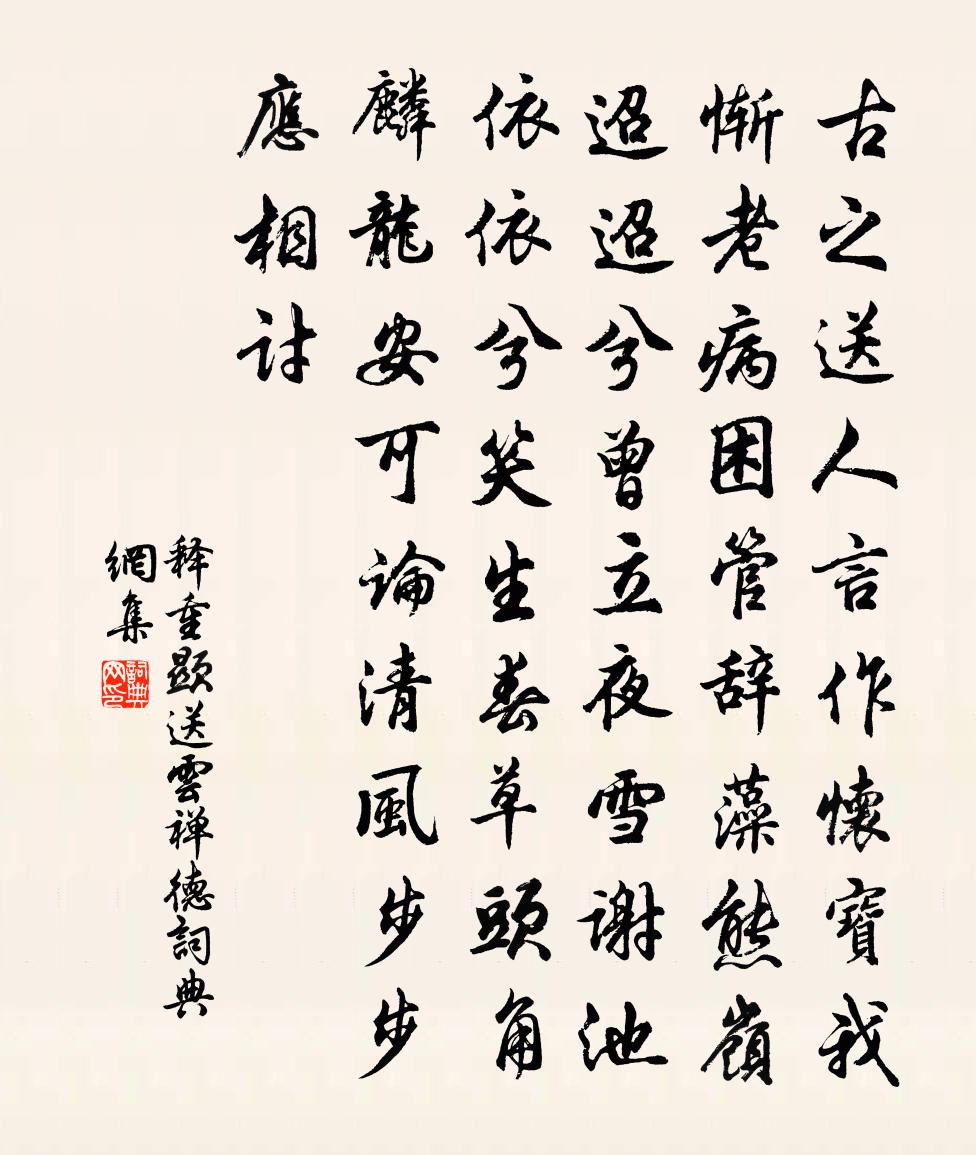 古之送人言作懷寶我
慚老病困管辞藻熊嶺
迢迢兮曾立夜雪謝池
依依兮笑生春草頭角
麟龍安可論清風步步
應相討
释重顯送雲禅德詞典
網集
詞典网印